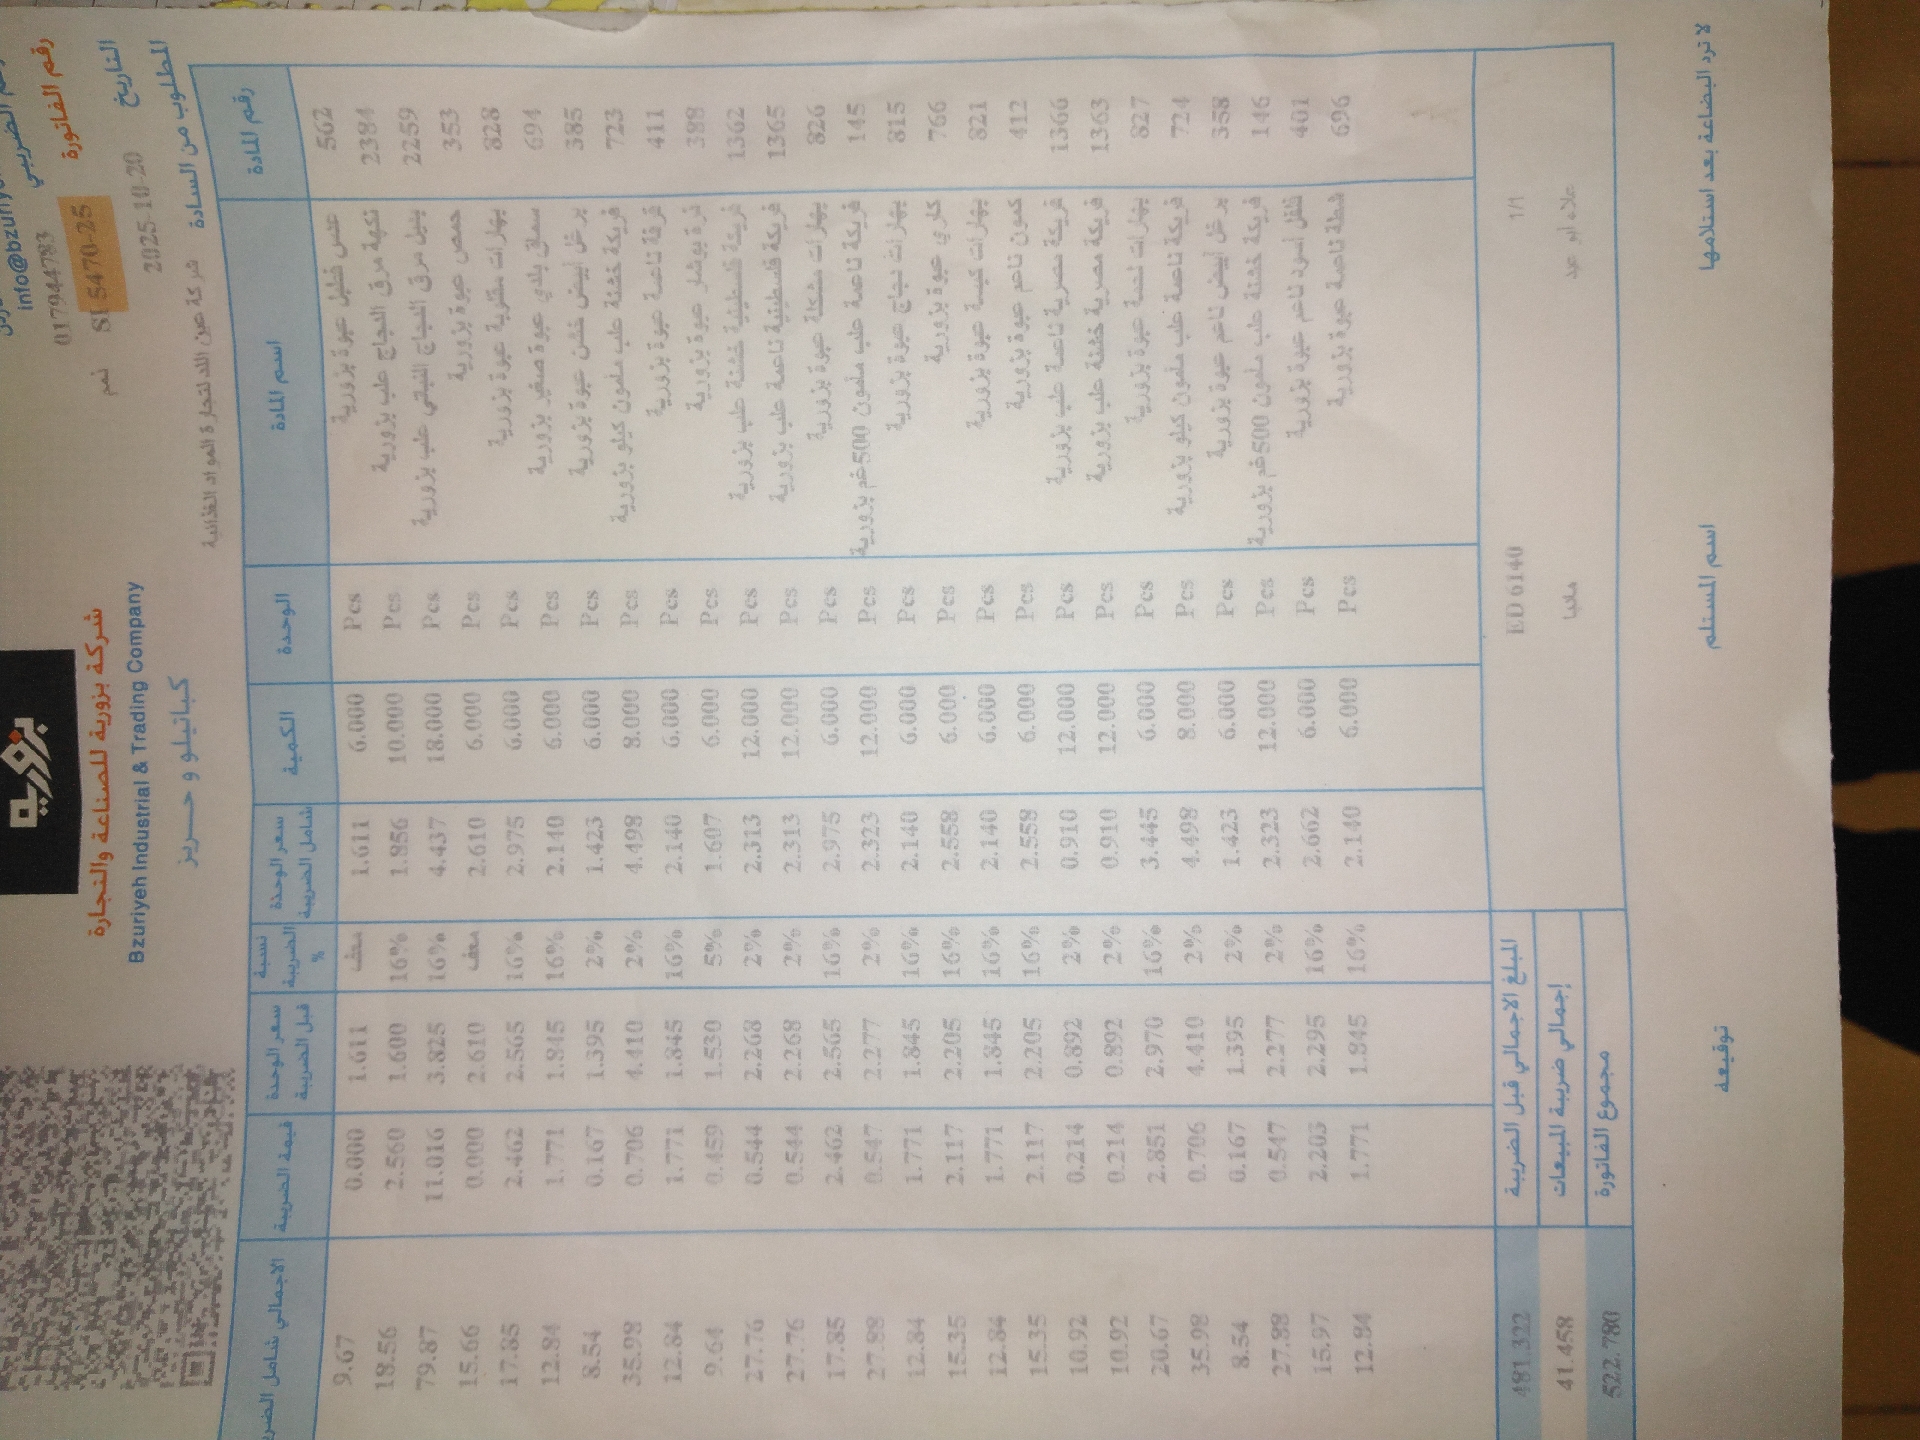 بزورية
شركة بزورية للصناعة والتجارة
Bzuriyeh Industrial & Trading Company
كباتيلو و حريز
info@bzuriy
017944783
رقم الفاتورة SI-5470-25
التاريخ 2025-10-20 نمم
المطلوب من السادة شركة عين الد لتجارة المواد الغذائية
رقم المادة اسم المادة الوحدة الكمية سعر الوحدة شامل الضريبة نسبة الضريبة % سعر الوحدة قبل الضريبة قيمة الضريبة الاجمالي شامل الضر
562 عدس فتيل عبوة بزورية Pcs 6.000 1.611 معف 1.611 0.000 9.67
2384 نكهة مرق الدجاج علب بزورية Pcs 10.000 1.856 16% 1.600 2.560 18.56
2259 بديل مرق الدجاج النباتي علب بزورية Pcs 18.000 4.437 16% 3.825 11.016 79.87
353 حمص عبوة بزورية Pcs 6.000 2.610 معف 2.610 0.000 15.66
828 بهارات مقلوبة عبوة بزورية Pcs 6.000 2.975 16% 2.565 2.462 17.85
694 سماق بلدي عبوة صغير بزورية Pcs 6.000 2.140 16% 1.845 1.771 12.84
385 برغل ابيض خشن عبوة بزورية Pcs 6.000 1.423 2% 1.395 0.167 8.54
723 فريكة خشنة علب ملمون كيلو بزورية Pcs 8.000 4.498 2% 4.410 0.706 35.98
411 قرفة ناعمة عبوة بزورية Pcs 6.000 2.140 16% 1.845 1.771 12.84
388 ذرة بوشار عبوة بزورية Pcs 6.000 1.607 5% 1.530 0.459 9.64
1362 فريكة فلسطينية خشنة علب بزورية Pcs 12.000 2.313 2% 2.268 0.544 27.76
1365 فريكة فلسطينية ناعمة علب بزورية Pcs 12.000 2.313 2% 2.268 0.544 27.76
826 بهارات مشكلة عبوة بزورية Pcs 6.000 2.975 16% 2.565 2.462 17.85
145 فريكة ناعمة علب ملمون 500غم بزورية Pcs 12.000 2.323 2% 2.277 0.547 27.88
815 بهارات دجاج عبوة بزورية Pcs 6.000 2.140 16% 1.845 1.771 12.84
766 كاري عبوة بزورية Pcs 6.000 2.558 16% 2.205 2.117 15.35
821 بهارات كبسة عبوة بزورية Pcs 6.000 2.140 16% 1.845 1.771 12.84
412 كمون ناعم عبوة بزورية Pcs 6.000 2.558 16% 2.205 2.117 15.35
1366 فريكة مصرية ناعمة علب بزورية Pcs 12.000 0.910 2% 0.892 0.214 10.92
1363 فريكة مصرية خشنة علب بزورية Pcs 12.000 0.910 2% 0.892 0.214 10.92
827 بهارات لحمة عبوة بزورية Pcs 6.000 3.445 16% 2.970 2.851 20.67
724 فريكة ناعمة علب ملمون كيلو بزورية Pcs 8.000 4.498 2% 4.410 0.706 35.98
358 برغل ابيض ناعم عبوة بزورية Pcs 6.000 1.423 2% 1.395 0.167 8.54
146 فريكة خشنة علب ملمون 500غم بزورية Pcs 12.000 2.323 2% 2.277 0.547 27.88
401 فلفل اسود ناعم عبوة بزورية Pcs 6.000 2.662 16% 2.295 2.203 15.97
696 شطة ناعمة عبوة بزورية Pcs 6.000 2.140 16% 1.845 1.771 12.84
1/1 ED 6140 المبلغ الاجمالي قبل الضريبة 481.322
علاء ابو عيد مادبا إجمالي ضريبة المبيعات 41.458
مجموع الفاتورة 522.780
لا ترد البضاعة بعد استلامها اسم المستلم توقيعه